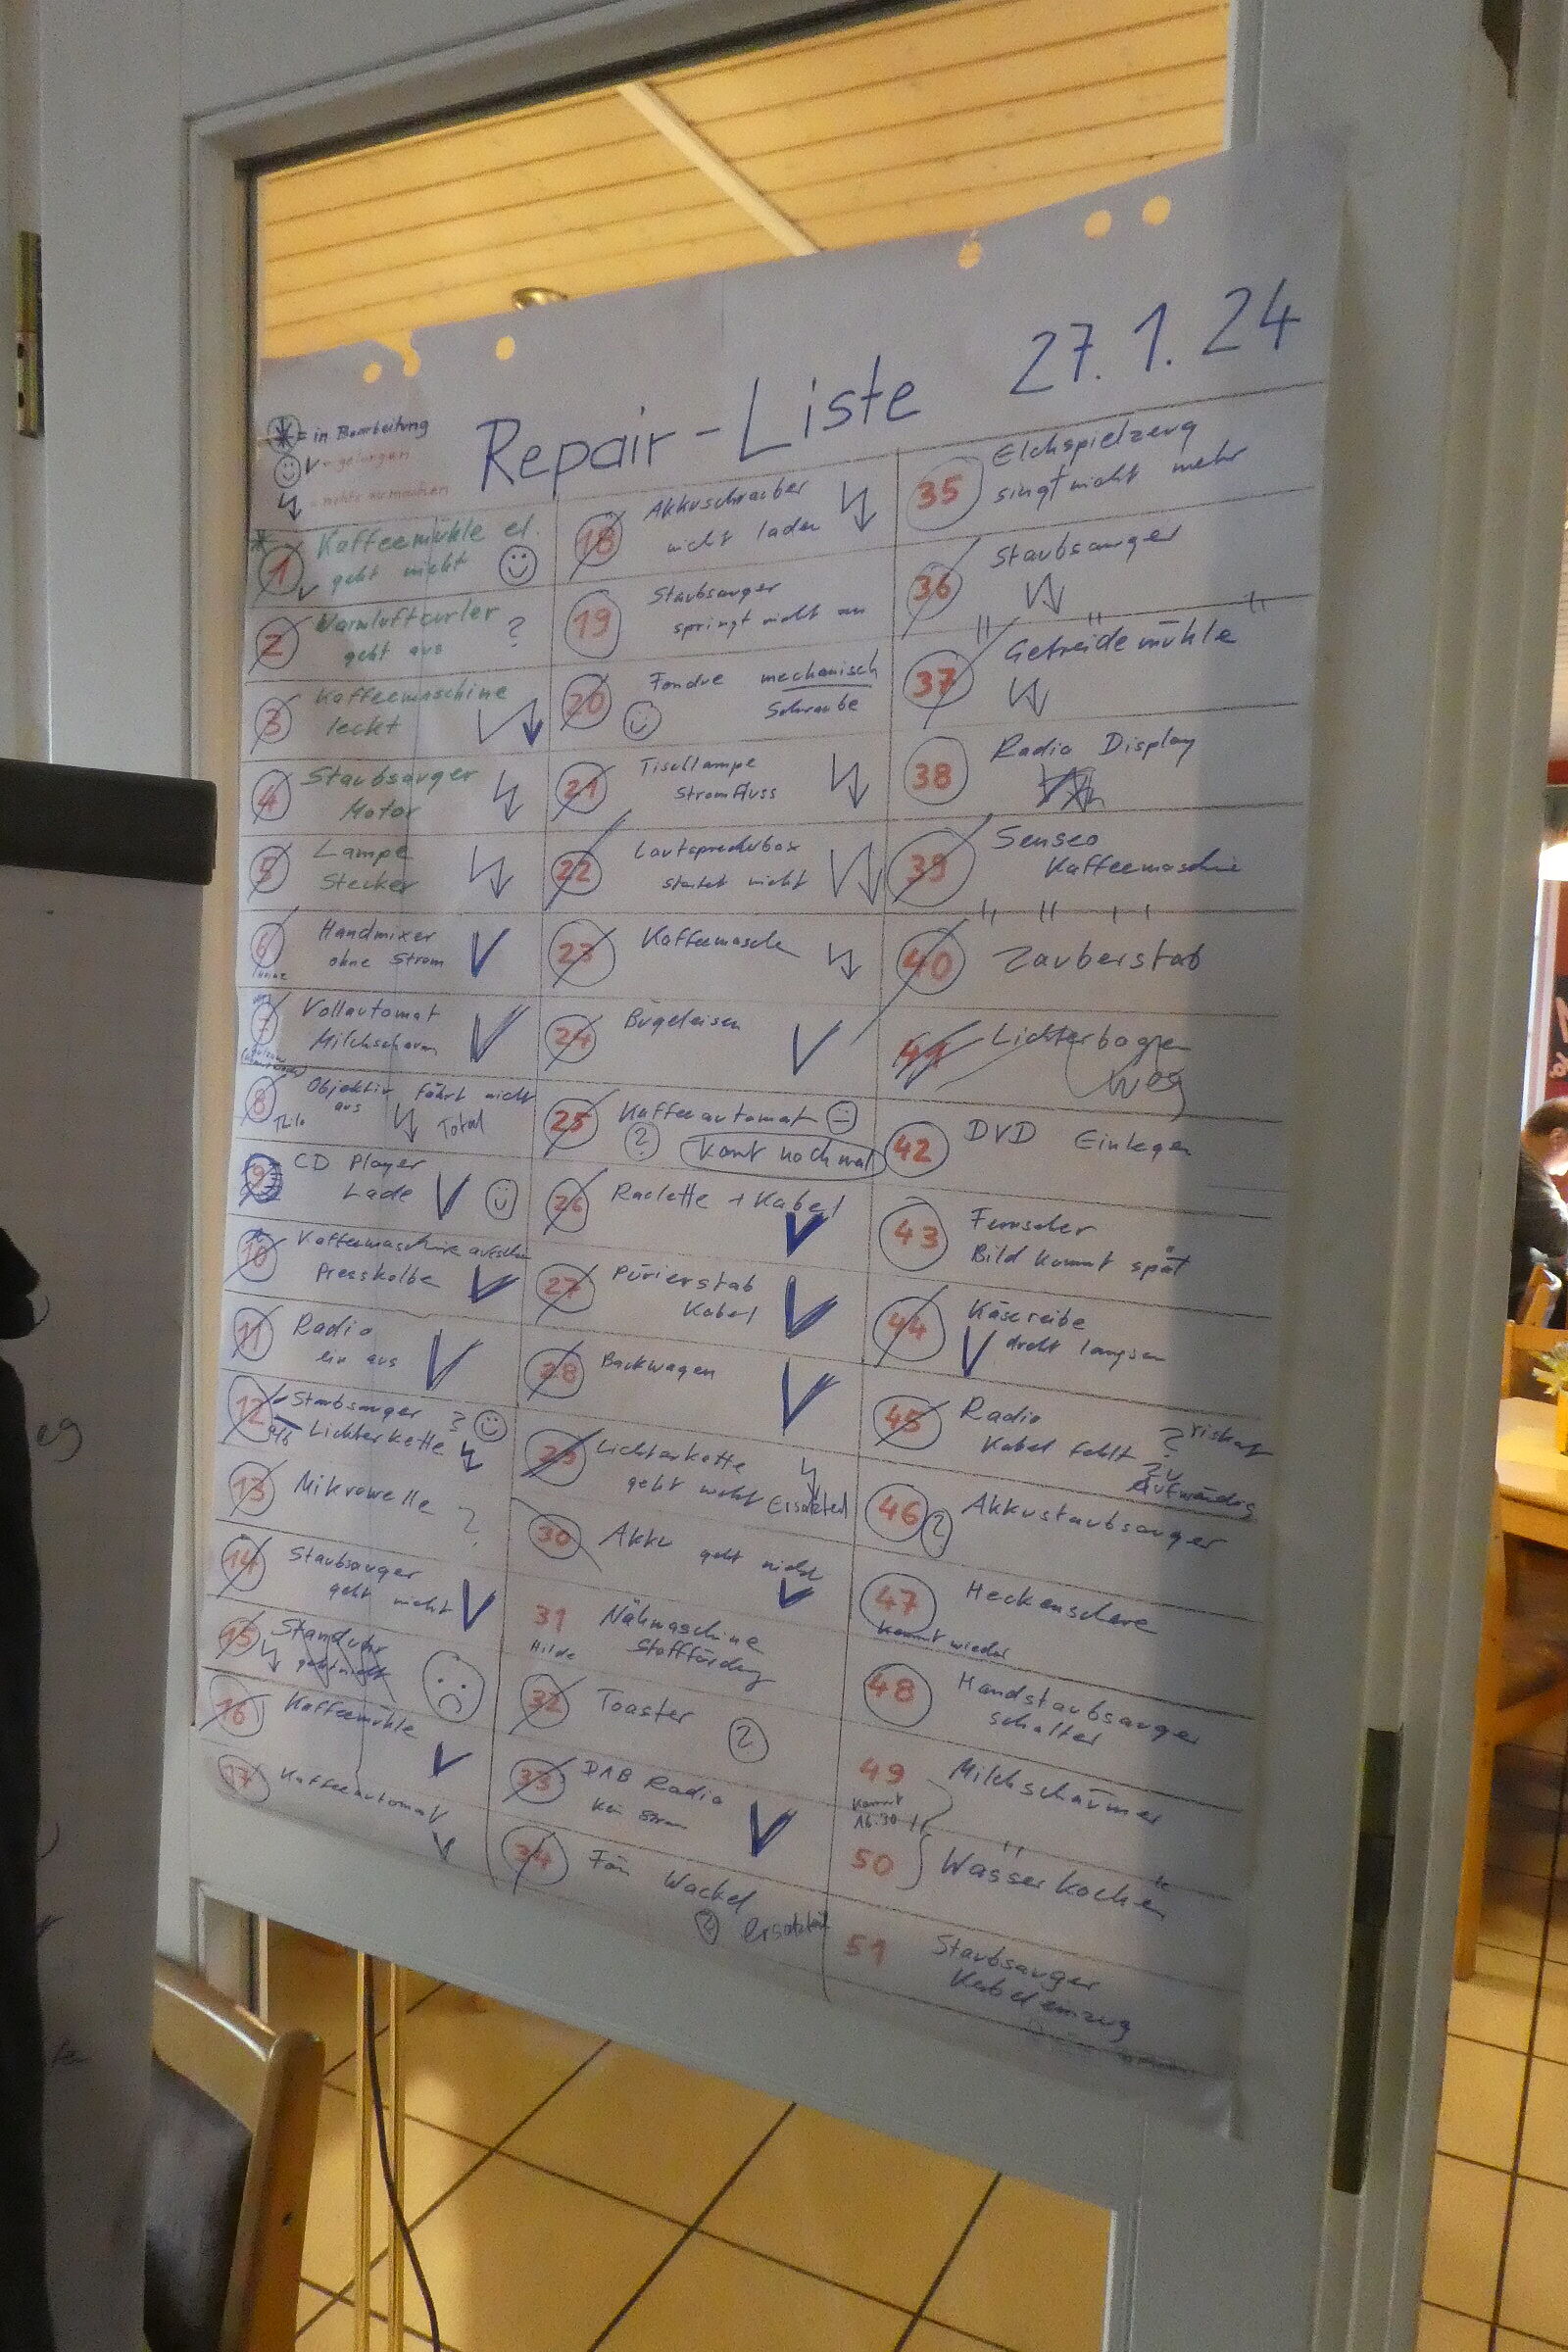 Repair-Liste 27.1.24
= in Bearbeitung
= gelungen
= nichts zu machen
1 Kaffeemühle el.
geht nicht
2 Warmluftcurler ?
geht aus
3 Kaffeemaschine
leckt
4 Staubsauger
Motor
5 Lampe
Stecker
6 Handmixer
ohne Strom
7 Vollautomat
Milchschaum
8 Objektiv fährt nicht
aus
Thilo Total
9 CD Player
Lade
10 Kaffeemaschine
Presskolbe
11 Radio
ein aus
12 Staubsauger ?
Lichterkette
13 Mikrowelle ?
14 Staubsauger
geht nicht
15 Standuhr
geht nicht
16 Kaffeemühle
17 Kaffeeautomat
18 Akkuschrauber
nicht laden
19 Staubsauger
springt nicht an
20 Fondue mechanisch
Schraube
21 Tischlampe
Stromfluss
22 Lautsprecherbox
startet nicht
23 Kaffeemasch
24 Bügeleisen
25 Kaffeeautomat
? komt nochmal
26 Raclette + Kabel
27 Pürierstab
Kabel
28 Backwagen
29 Lichterkette
geht nicht Ersatzteil
30 Akku geht nicht
31 Nähmaschine
Hilde Stoffförderg
32 Toaster ?
33 DAB Radio
kein Strom
34 Fön Wackel
? Ersatzteil
35 Elchspielzeug
singt nicht mehr
36 Staubsauger
37 Getreidemühle
38 Radio Display
39 Senseo
Kaffeemaschine
40 Zauberstab
41 Lichterbogen
weg
42 DVD Einlegen
43 Fernseher
Bild kommt spät
44 Käsereibe
dreht langsam
45 Radio
Kabel fehlt ? riskant
zu
Aufwändig
46 ? Akkustaubsauger
47 Heckenschere
kommt wieder
48 Handstaubsauger
schalter
49 Milchschäumer
kommt
16:30
50 Wasserkocher
51 Staubsauger
Kabeleinzug